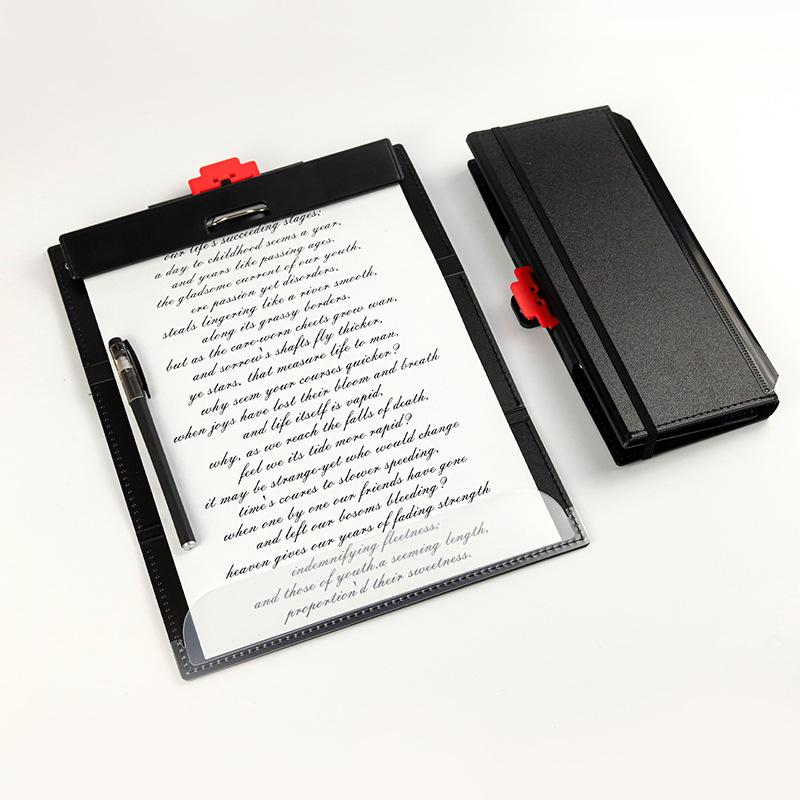 our life's succeeding stages;
a day to childhood seems a year,
and years like passing ages.
the gladsome current of our youth,
ere passion yet disorders,
steals lingering like a river smooth,
along its grassy borders.
but as the care-worn cheels grow wan,
and sorrow's shafts fly thicker,
ye stars, that measure life to man,
why seem your courses quicker?
when joys have lost their bloom and breath
and life itself is vapid,
why, as we reach the falls of death,
feel we its tide more rapid?
it may be strange-yet who would change
time's coures to slower speeding,
when one by one our friends have gone
and left our bosoms bleeding?
heaven gives our years of fading strength
indemnifying fleetness;
and those of youth,a seeming length,
proportion'd their sweetness.